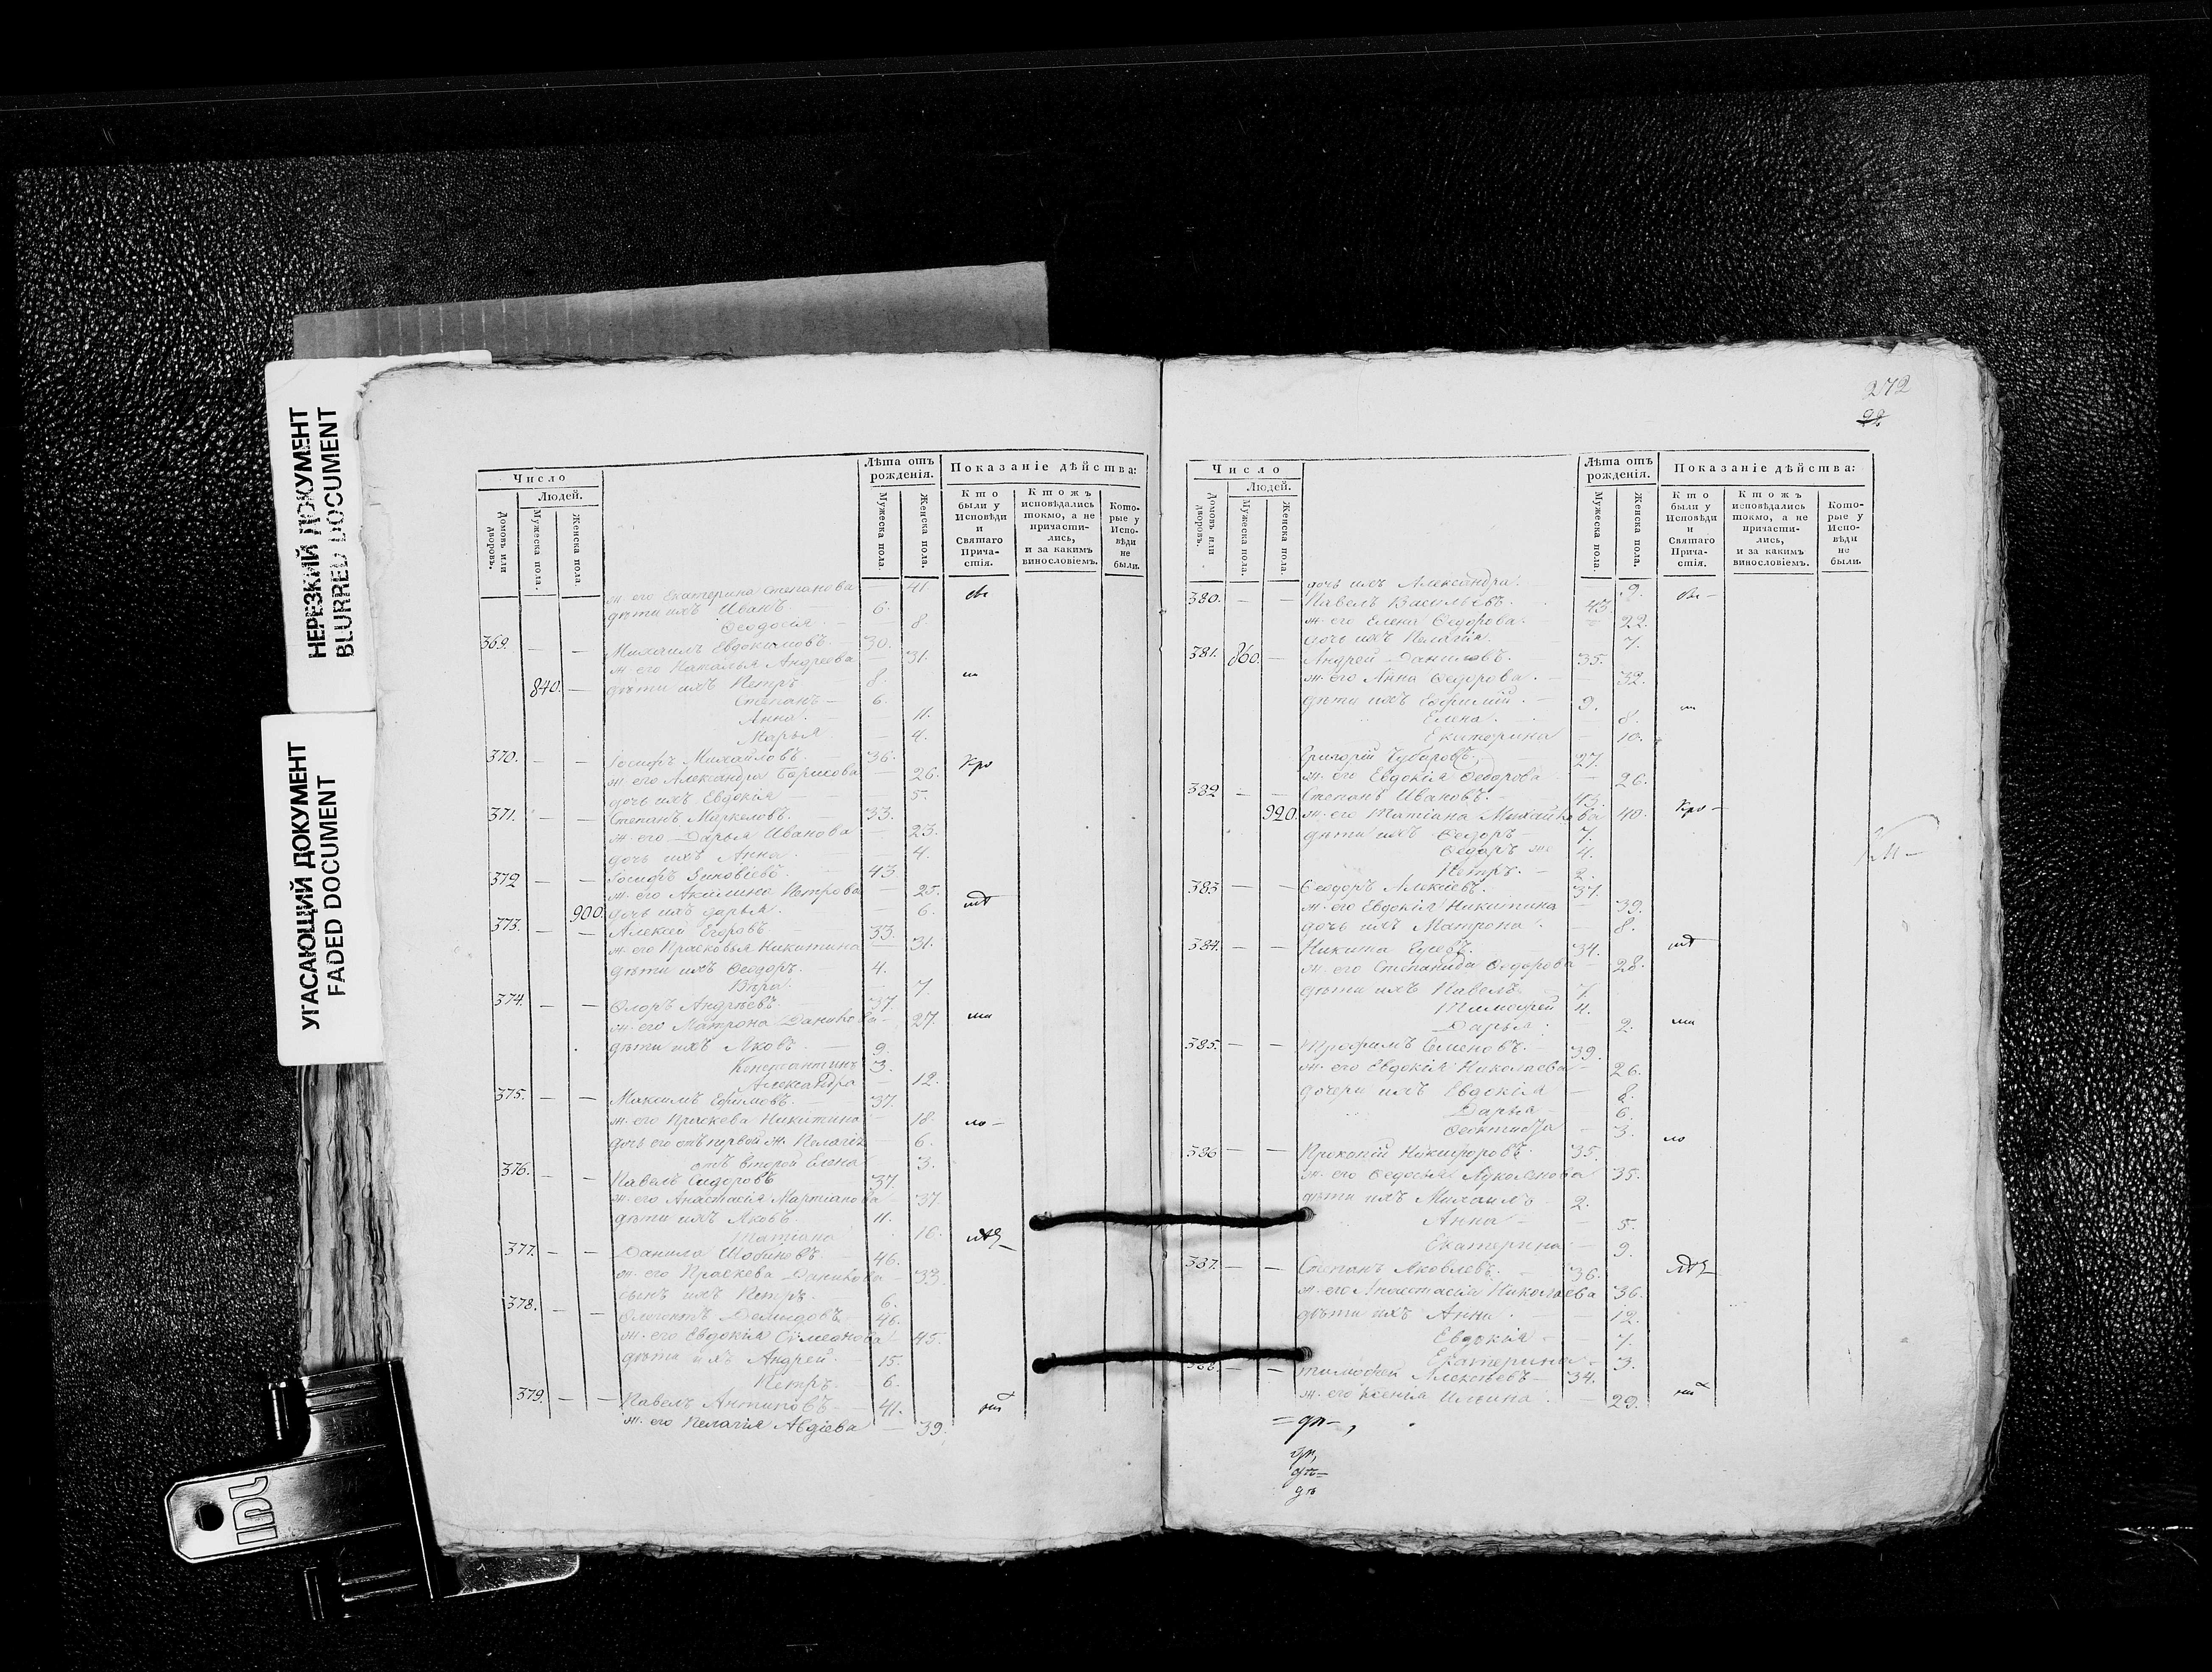 НЕРЕЗКИЙ ДОКУМЕНТ
BLURRED DOCUMENT
УГАСАЮЩИЙ ДОКУМЕНТ
FADED DOCUMENT
Число
Людей.
Домовъ или дворовъ.
Мужеска пола.
Женска пола.
Лѣта отъ рожденія.
Мужеска пола.
Женска пола.
Показаніе дѣйства:
Кто были у Исповѣди и Святаго Прича-стія.
Ктожъ исповѣдались токмо, а не причасти-лись, и за какимъ винословіемъ.
Кото-рые у Испо-вѣди не были.
ж. его Екатерина Степанова — 41.
дѣти ихъ Иванъ — 6.
Феодосія — 8
369. — — Михаилъ Евдокимовъ 30.
ж. его Наталья Андреева — 31.
840. — дѣти ихъ Петръ 8.
Степанъ — 6.
Анна. — 11.
Марья — 4.
370. — — Іосифъ Михайловъ. 36.
ж. его Александра Борисова — 26.
дочь ихъ Евдокія — 5.
371. — — Степанъ Маркеловъ. 33.
ж. его Дарья Иванова — 23.
дочь ихъ Анна — 4.
372 — — Іосифъ Зиновіевъ 43
ж. его Акилина Петрова — 25.
900. дочь ихъ Дарья — 6.
373. — — Алексѣй Егоровъ 33.
ж. его Прасковья Никитина — 31.
дѣти ихъ Феодоръ. 4.
Вѣра. — 7.
374. — — Флоръ Андреевъ. 37.
ж. его Матрона Данилова — 27.
дѣти ихъ Яковъ. — 9.
Константинъ 3.
Александра — 12.
375. — — Максимъ Ефимовъ. 37.
ж. его Праскева Никитина — 18.
дочь его отъ первой ж. Пелагея 6.
отъ второй Елена 3.
376. — — Павелъ Сидоровъ 37
ж. его Анастасія Мартианова — 37
дѣти ихъ Яковъ. 11.
Татіана 16.
377. — — Данила 46.
ж. его Праскева Данилова — 33.
сынъ ихъ Петръ. — 6.
378. — — Демидовъ 46.
ж. его Евдокія Симеонова 45.
дѣти ихъ Андрей. — 15.
Петръ. 6.
379. — — Павелъ Антиповъ — 41.
ж. его Пелагія Авдіева — 39.
272
Число
Людей.
Домовъ или дворовъ.
Мужеска пола.
Женска пола.
Лѣта отъ рожденія.
Мужеска пола.
Женска пола.
Показаніе дѣйства:
Кто были у Исповѣди и Святаго Прича-стія.
Ктожъ исповѣдались токмо, а не причасти-лись, и за какимъ винословіемъ.
Кото-рые у Испо-вѣди не были.
дочь ихъ Александра. 9.
380. — — Павелъ Васильевъ. 43.
ж. его Елена Федорова. — 22.
дочь ихъ Пелагія. 7.
381. 860. — Андрей Даниловъ. 35.
ж. его Анна Федорова. — 32.
дѣти ихъ 9.
Елена. 8.
Екатерина — 10.
Григорій Чубаровъ. 27.
ж. его Евдокія Феодорова — 26.
382 — — Степанъ Ивановъ. 43.
920. ж. его Татіана Михайлова 40.
дѣти ихъ Федоръ — 7.
Федоръ же 4.
Петръ. — 2.
383 — — Феодоръ Алексѣевъ. 37.
ж. его Евдокія Никитина 39.
дочь ихъ Матрона 8.
384. — — Никита 34.
ж. его Степанида Федорова 28.
дѣти ихъ Павелъ
Тимофей 4.
Дарья 2.
385. — — Трофимъ Семеновъ. 39.
ж. его Евдокія Николаева — 26.
дочери ихъ Евдокія — 8.
Дарья 6.
Феоктиста — 3.
386 — — Прокопій Никифоровъ. 35.
ж. его 35.
дѣти ихъ Михаилъ 2.
Анна — 5.
Екатерина — 9.
387. — — Степанъ Яковлевъ. 36.
ж. его Анастасія Николаева 36.
дѣти ихъ Анна — 12.
Евдокія 7.
Екатерина — 3.
388. — — Тимофей Алексѣевъ — 34.
ж. его Ксенія Ильина — 29.